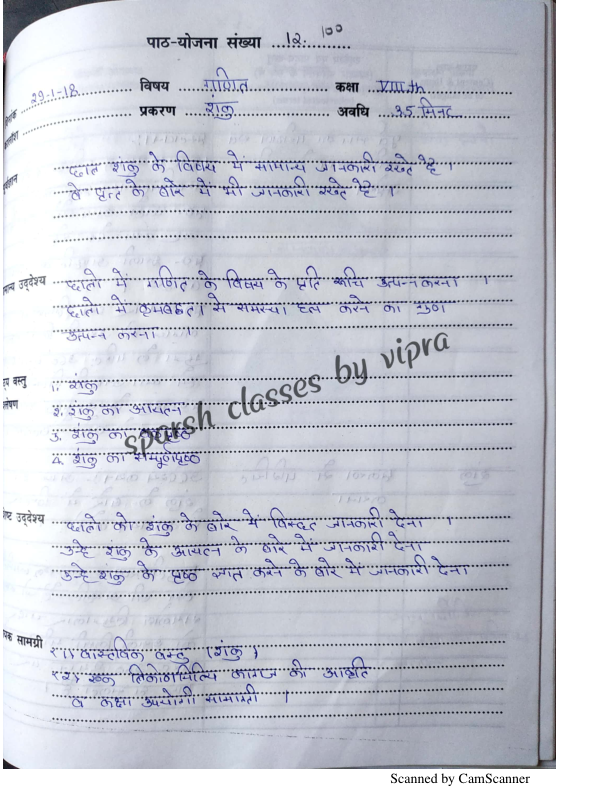 पाठ-योजना संख्या ...12...
100
29-1-18
विषय गणित कक्षा VIII th
प्रकरण शंकु अवधि 35 मिनट
छात्र शंकु के विषय में सामान्य जानकारी रखते है ।
वे वृत्त के बारे में भी जानकारी रखते है ।
उद्देश्य छात्रो में गणित के विषय के प्रति रूचि उत्पन्न करना ।
छात्रो में क्रमबद्धता से समस्या हल करने का गुण
उत्पन्न करना ।
वस्तु 1. शंकु
2. शंकु का आयतन
3. शंकु का
4. शंकु का सम्पूर्णपृष्ठ
sparsh classes by vipra
उद्देश्य छात्रो को शंकु के बारे में विस्तृत जानकारी देना ।
उन्हे शंकु के आयतन के बारे में जानकारी देना
उन्हे शंकु के पृष्ठ ज्ञात करने के बारे में जानकारी देना
सामग्री (1) वास्तविक वस्तु (शंकु)
(2) एक कागज की आकृति
व कक्षा उपयोगी सामाग्री ।
Scanned by CamScanner